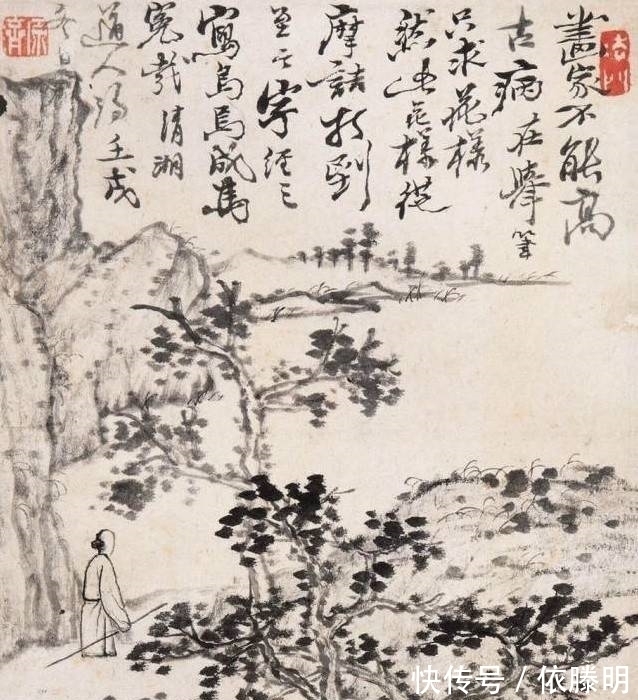 畫家不能高
古病在舉筆
只求花樣
然此花樣從
摩詰打到
至今字經三
寫烏焉成馬
冤哉清湘
道人濟壬戌
快传号 / 依滕明